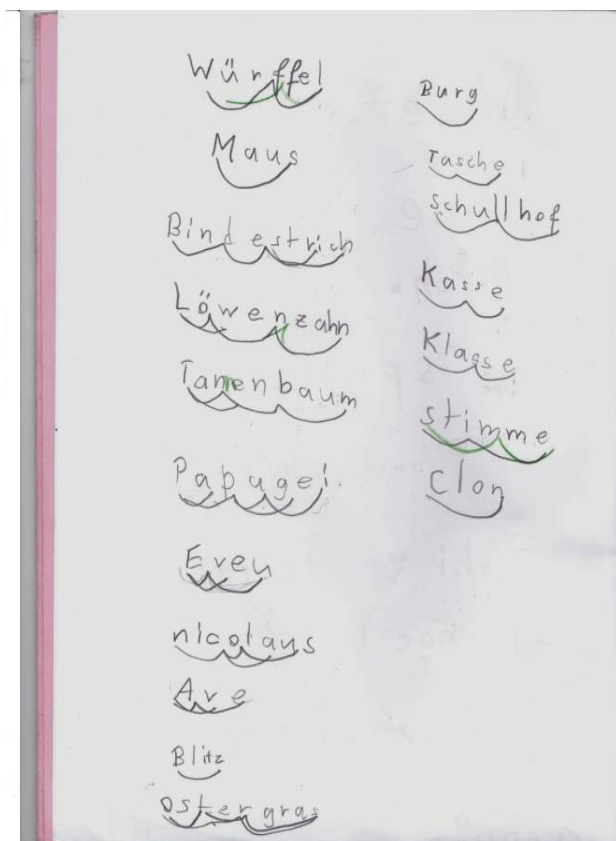 Würffel
Maus
Bindestrich
Löwenzahn
Tannenbaum
Papugei.
Eveu
nicolaus
Ave
Blitz
ostergras
Burg
Tasche
schullhof
Kasse
Klasse
stimme
Clon